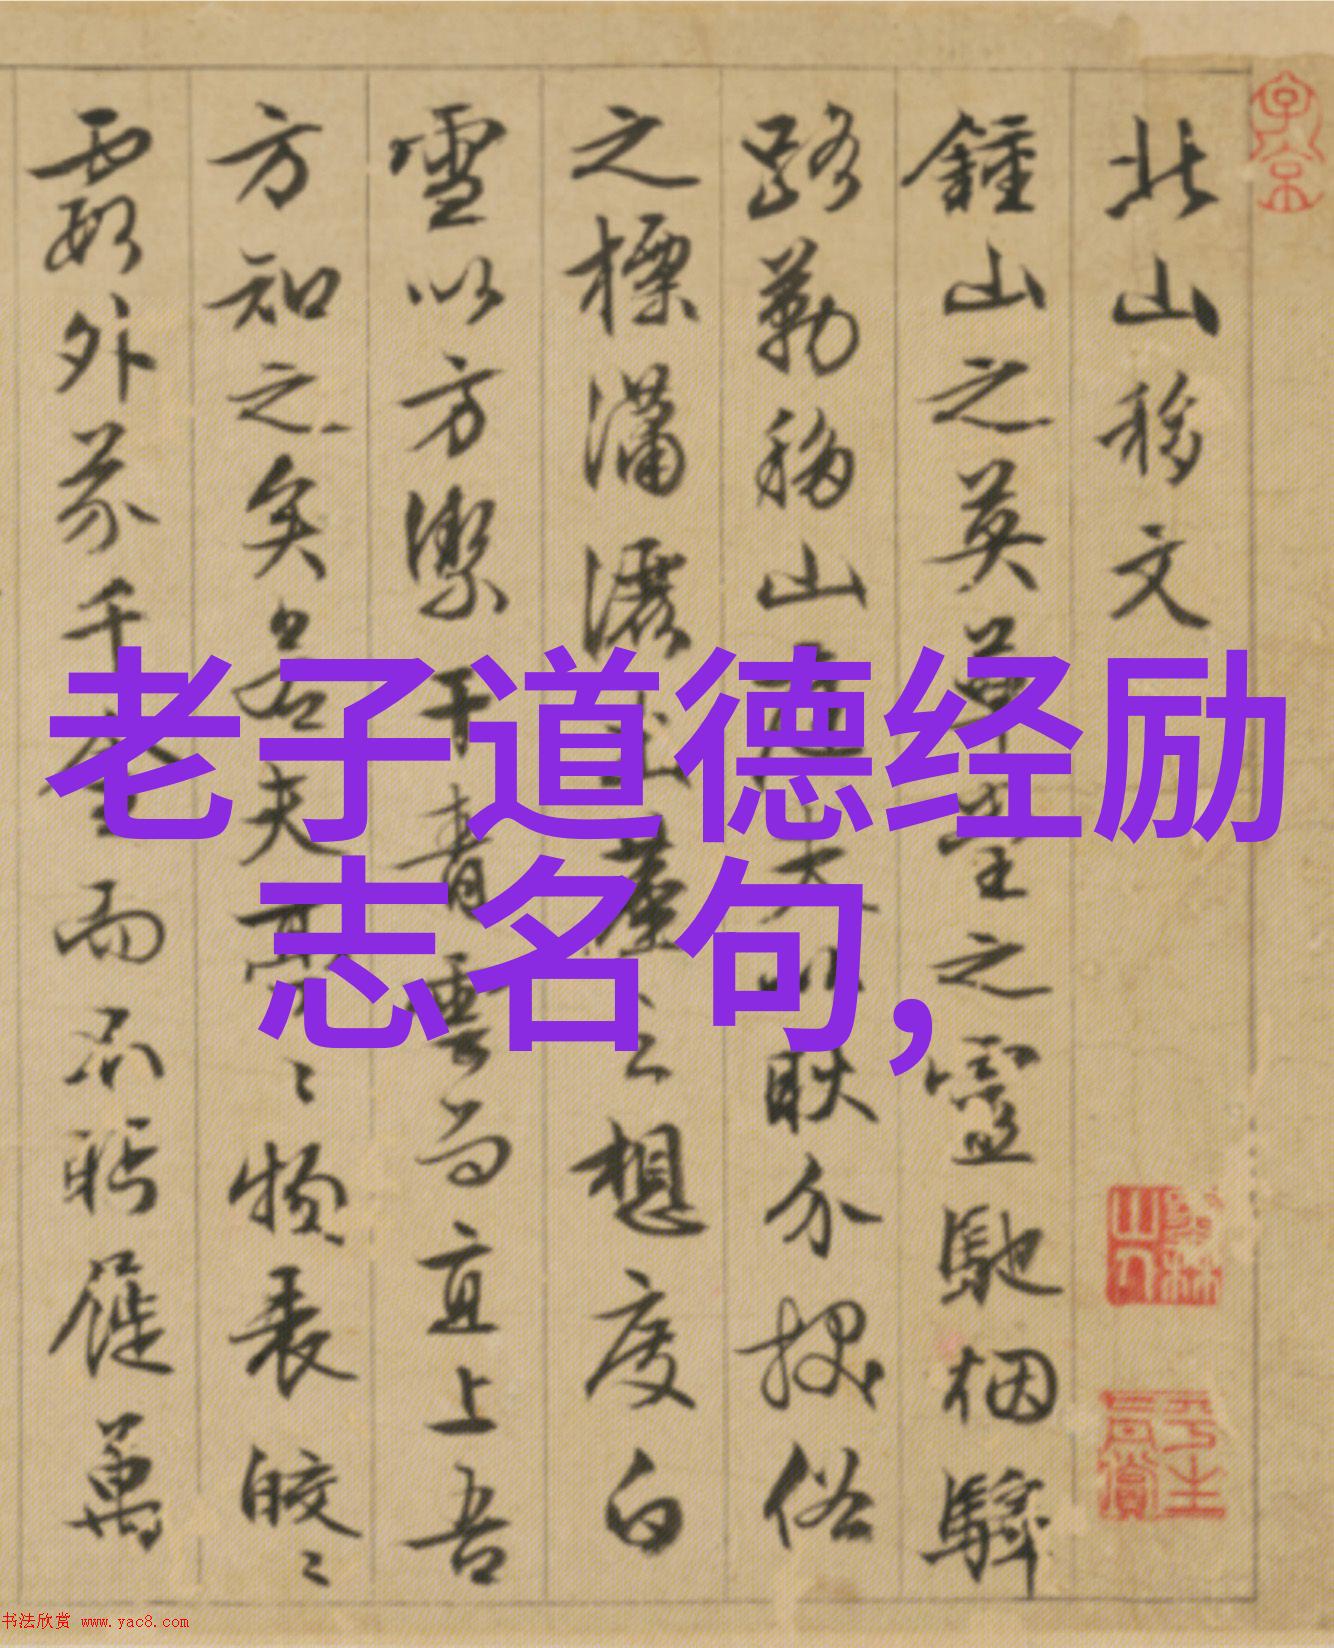 老子道德经励
志名句,
北山移文
鍾山之英草堂之靈馳烟驛
路勒移山庭夫以耿介拔俗
之標瀟灑出塵之想度白
雪以方潔干青雲而直上吾
方知之矣若夫亭〻物表皎〻
霞外芥千金而不眄屣萬
书法欣赏 www.yac8.com